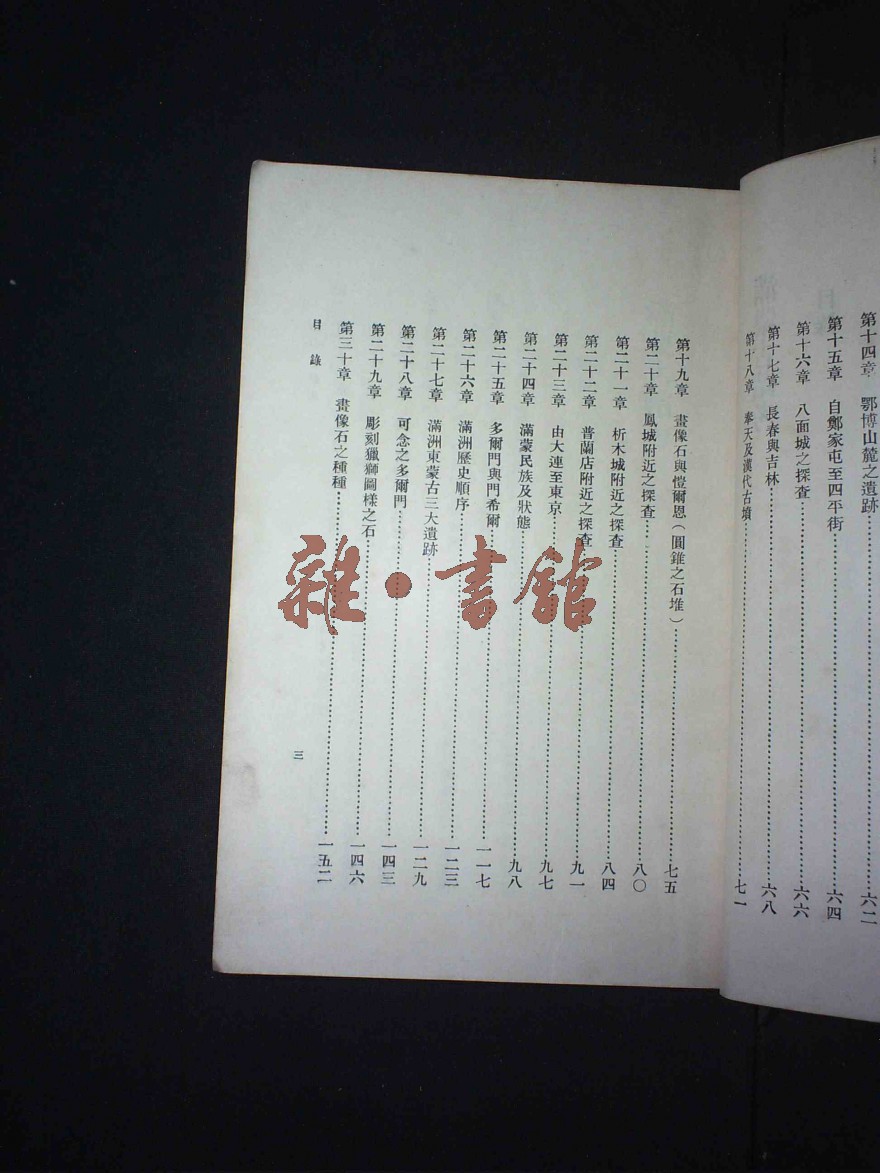 第十四章 鄂博山麓之遺跡……六二
第十五章 自鄭家屯至四平街……六四
第十六章 八面城之探查……六六
第十七章 長春與吉林……六八
第十八章 奉天及漢代古墳……七一
第十九章 畫像石與愷爾恩(圓錐之石堆)……七五
第二十章 鳳城附近之探查……八〇
第二十一章 析木城附近之探查……八四
第二十二章 普蘭店附近之探查……九一
第二十三章 由大連至東京……九七
第二十四章 滿蒙民族及狀態……九八
第二十五章 多爾門與門希爾……一一七
第二十六章 滿洲歷史順序……一二三
第二十七章 滿洲東蒙古三大遺跡……一二九
第二十八章 可念之多爾門……一四三
第二十九章 彫刻獵獅圖樣之石……一四六
第三十章 畫像石之種種……一五二
目錄
三
雜·書館